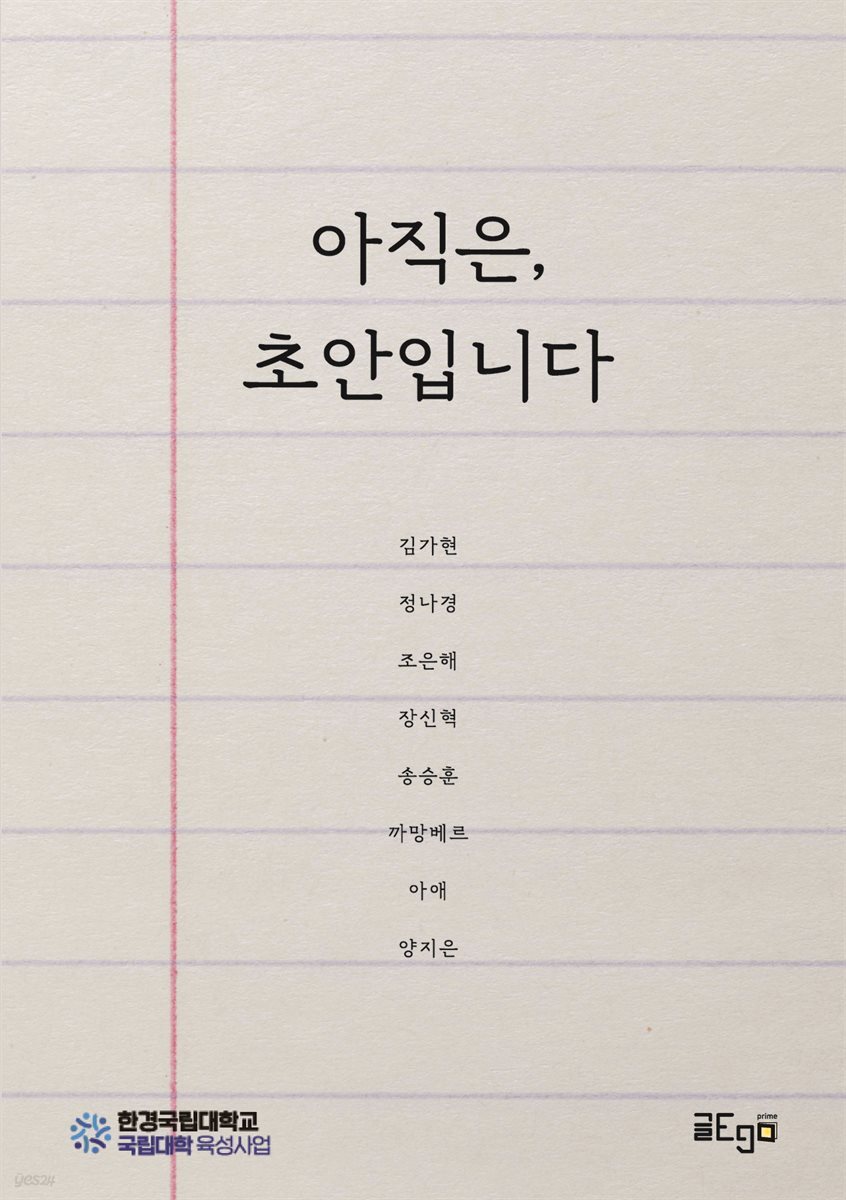 아직은,
초안입니다
김가현
정나경
조은해
장신혁
송승훈
까망베르
아애
양지은
한경국립대학교
국립대학 육성사업
글Ego prime
yes24